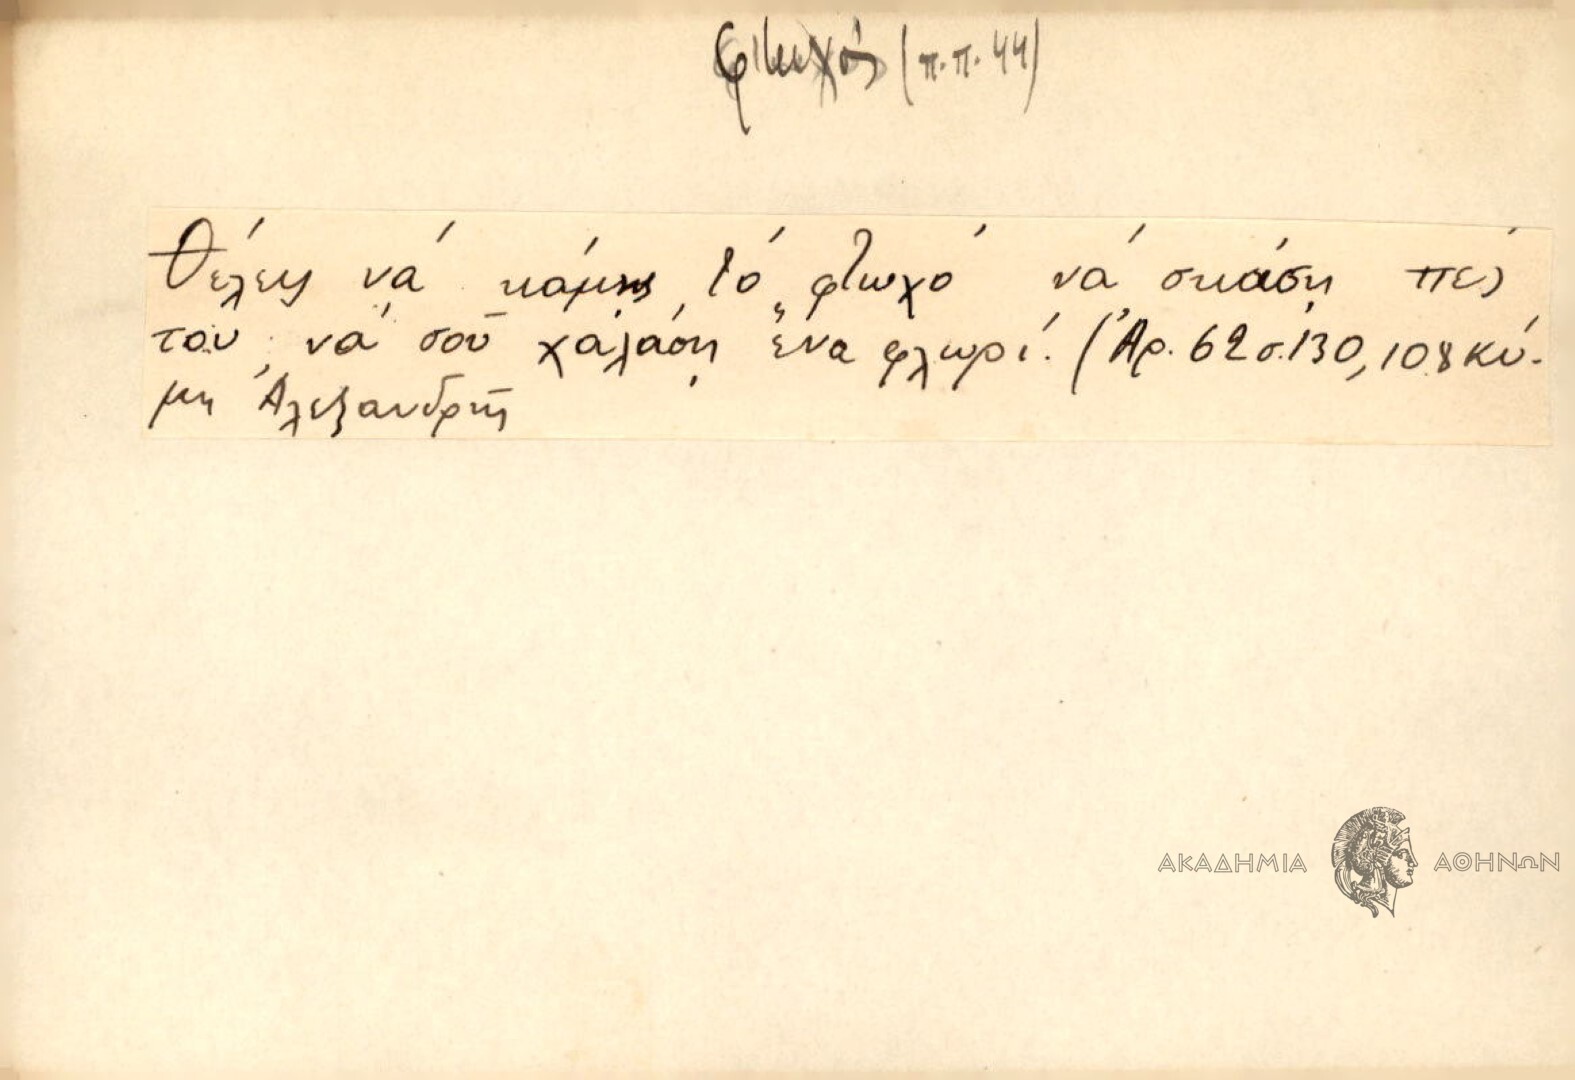 φτωχός (π.π. 44)
Θέλεις νά κάμῃς τό φτωχό νά σκάσῃ πές
του νά σοῦ χαλάσῃ ἕνα φλωρί. (Ἀρ. 62 σ. 130, 108 Κύ-
μη Ἀλεξανδρῆ
ΑΚΑΔΗΜΙΑ ΑΘΗΝΩΝ